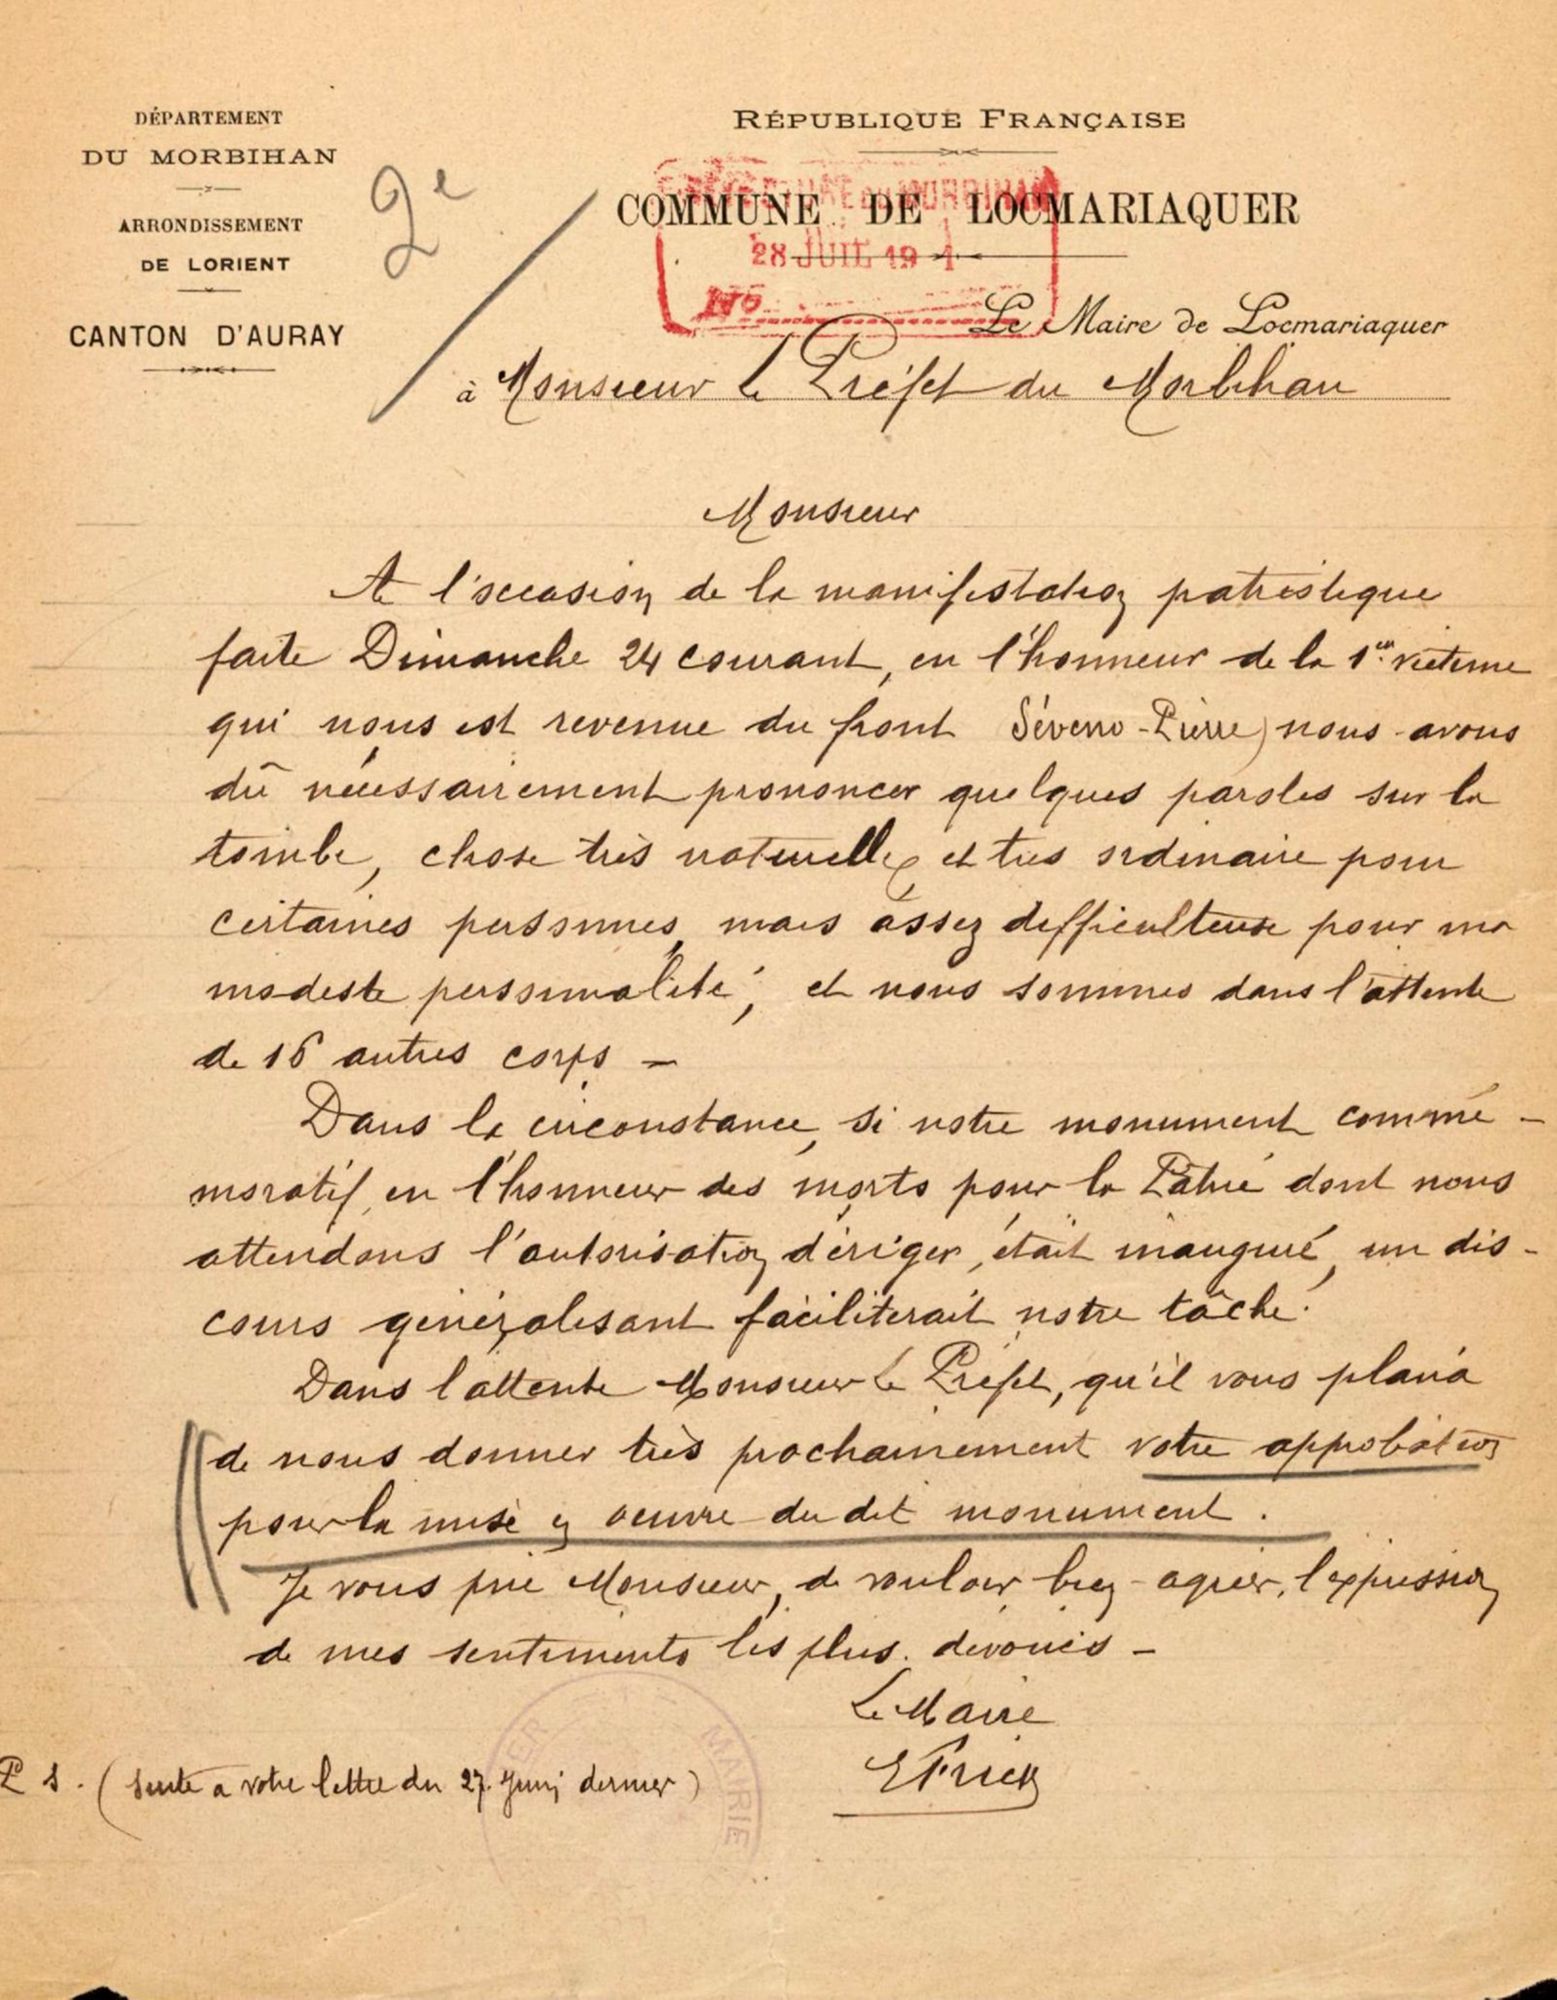 DÉPARTEMENT
DU MORBIHAN
ARRONDISSEMENT
DE LORIENT
CANTON D'AURAY
2e
RÉPUBLIQUE FRANÇAISE
COMMUNE DE LOCMARIAQUER
PRÉFECTURE DU MORBIHAN
28 JUIL 19 1
Le Maire de Locmariaquer
à Monsieur le Préfet du Morbihan
Monsieur
A l'occasion de la manifestation patriotique
faite Dimanche 24 courant, en l'honneur de la 1ère victime
qui nous est revenue du front Séveno-Pierre) nous avons
dû nécessairement prononcer quelques paroles sur la
tombe, chose très naturelle, et très ordinaire pour
certaines personnes, mais assez difficulteuse pour ma
modeste personnalité; et nous sommes dans l'attente
de 16 autres corps -
Dans la circonstance, si notre monument commé-
moratif, en l'honneur des morts pour la Patrie dont nous
attendons l'autorisation d'ériger, était inauguré, un dis-
cours généralisant faciliterait notre tâche.
Dans l'attente Monsieur le Préfet, qu'il vous plaira
de nous donner très prochainement votre approbation
pour la mise en oeuvre du dit monument.
Je vous prie Monsieur, de vouloir bien agréer, l'expression
de mes sentiments les plus dévoués -
Le Maire
P S. (suite a votre lettre du 27. Juin dernier)
MAIRIE